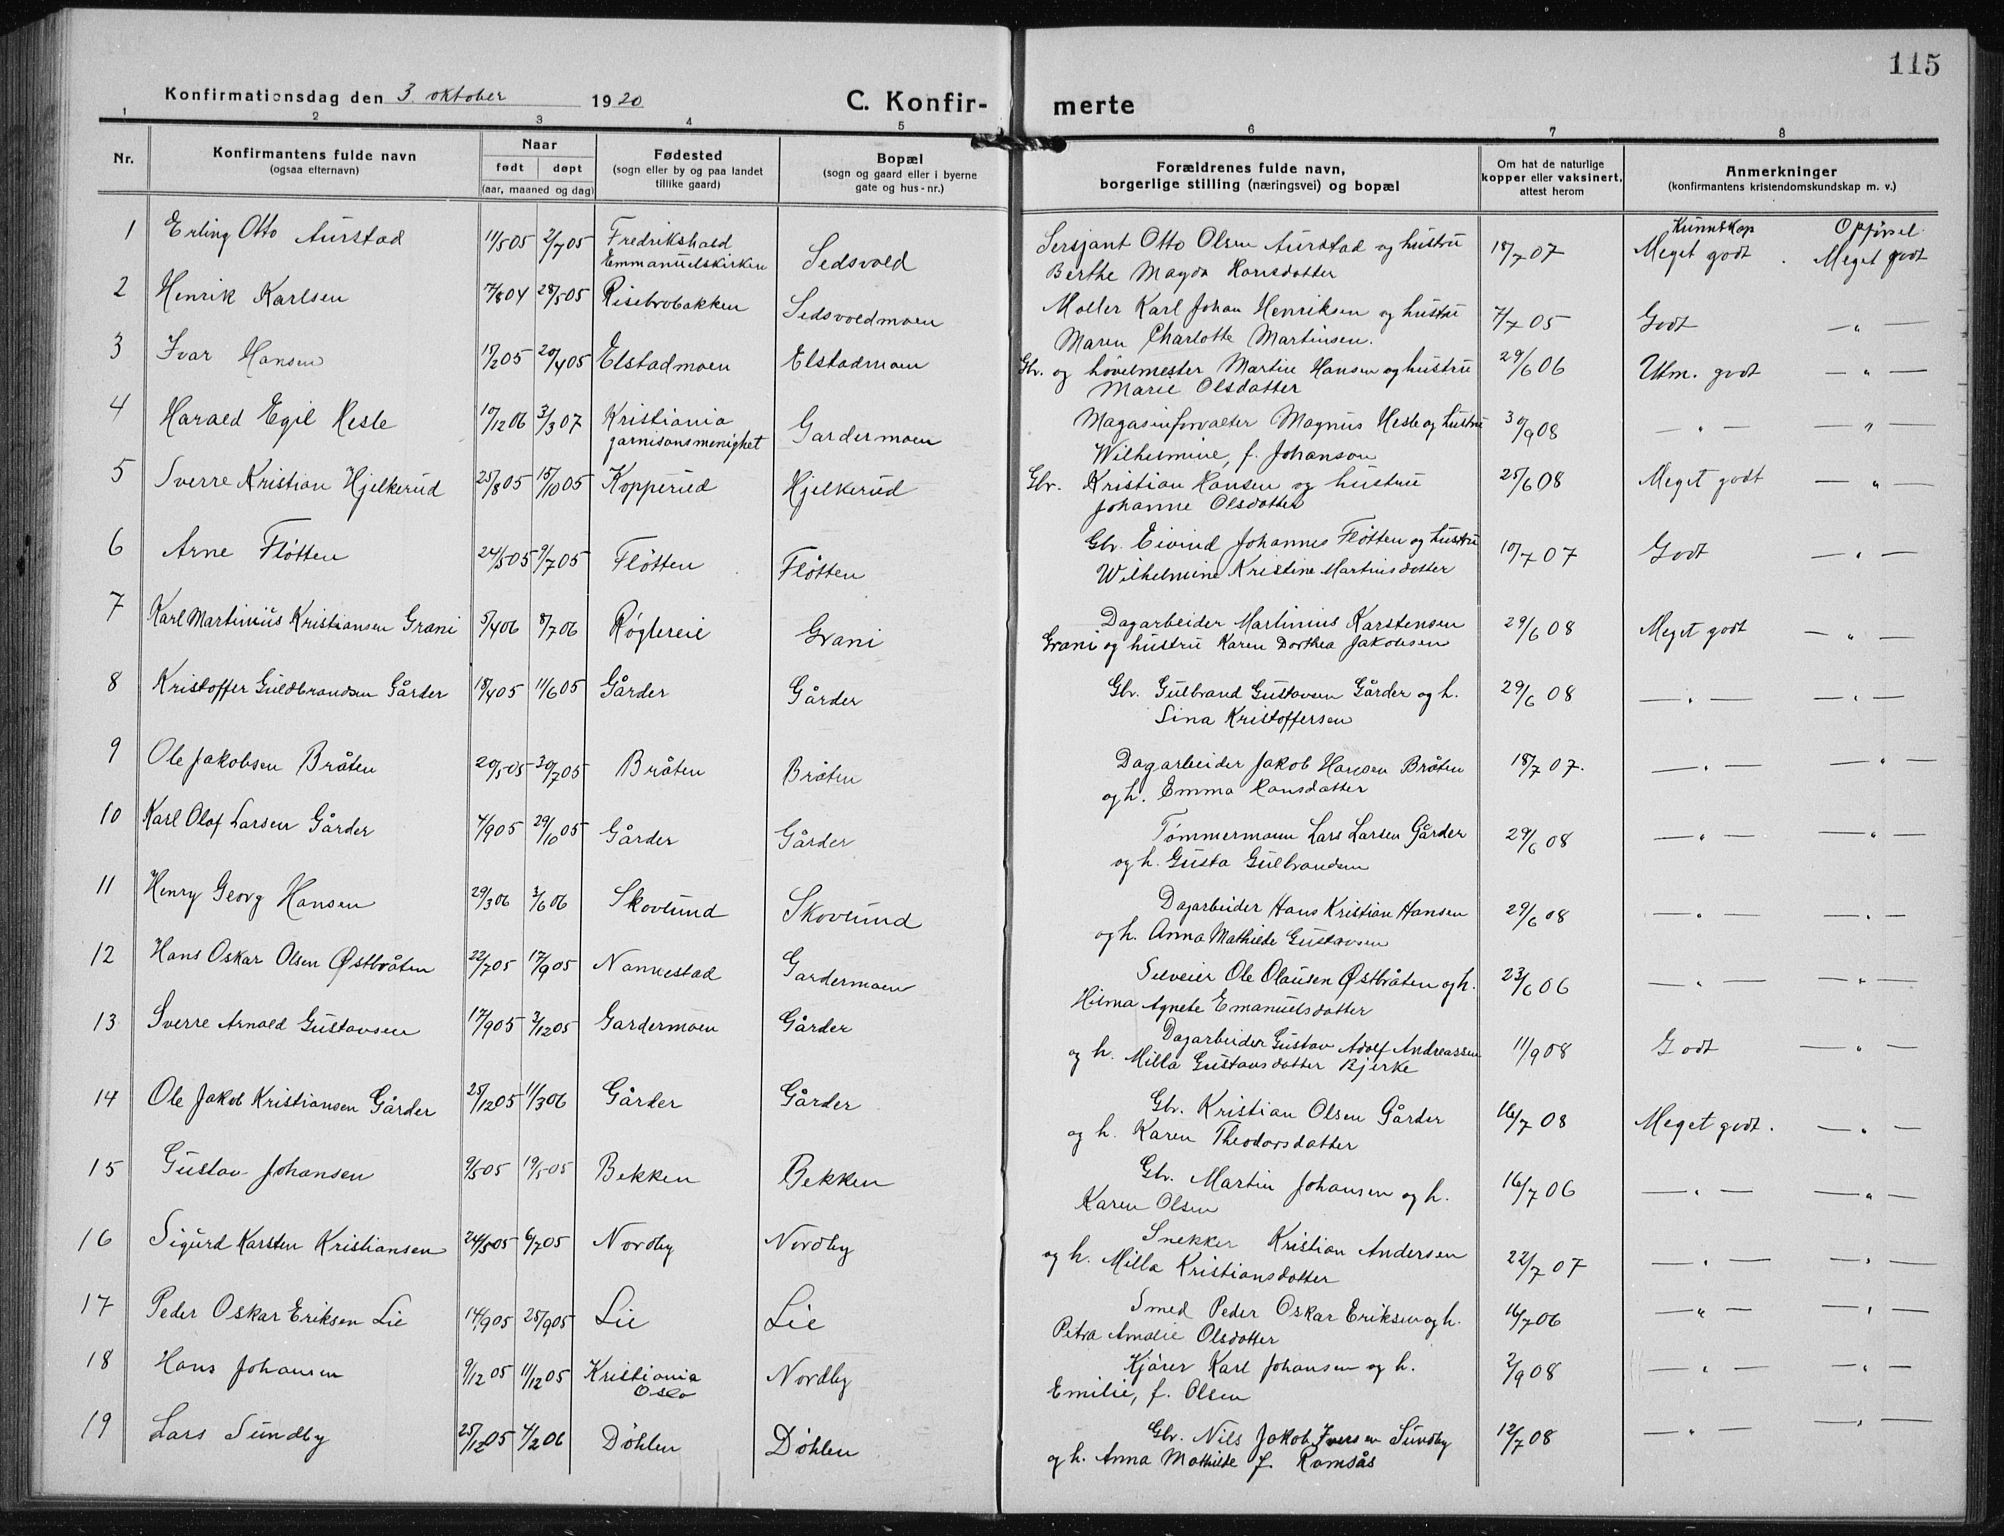 115
Konfirmationsdag den 3. oktober 1920
C. Konfir- merte
1 2 3 4 5 6 7 8
Nr.
Konfirmantens fulde navn
(ogsaa efternavn)
Naar
født døpt
(aar, maaned og dag)
Fødested
(sogn eller by og paa landet
tillike gaard)
Bopæl
(sogn og gaard eller i byerne
gate og hus-nr.)
Forældrenes fulde navn,
borgerlige stilling (næringsvei) og bopæl
Om hat de naturlige
kopper eller vaksinert,
attest herom
Anmerkninger
(konfirmantens kristendomskundskap m. v.)
Kunnskap Opførsel
1 Erling Otto Aurstad 11/5 05 2/7 05 Fredrikshald Sedsvold Sersjant Otto Olsen Aurstad og hustru 18/7 07 Meget godt. Meget godt
Emmanuelskirken Berthe Magda Hansdatter
2 Henrik Karlsen 7/8 04 28/5 05 Risebrobakken Sedsvoldmoen Møller Karl Johan Henriksen og hustru 7/7 05 Godt — „ —
Maren Charlotte Martinsen.
3 Ivar Hansen 15/2 05 20/4 05 Elstadmoen Elstadmoen Gbr. og høvelmester Martin Hansen og hustru 29/6 06 Utm. godt — „ —
Marie Olsdatter
4 Harald Egil Hesle 10/12 06 3/3 07 Kristiania Gardermoen Magasinforvalter Magnus Hesle og hustru 30/9 08 — „ — — „ —
garnisonsmenighet Wilhelmine, f. Johanson
5 Sverre Kristian Hjelkerud 25/8 05 15/10 05 Kopperud Hjelkerud Gbr. Kristian Hansen og hustru 25/6 08 Meget godt — „ —
Johanne Olsdatter
6 Arne Fløtten 24/5 05 9/7 05 Fløtten Fløtten Gbr. Eivind Johannes Fløtten og hustru 10/7 07 Godt — „ —
Wilhelmine Kristine Martinsdatter
7 Karl Martinius Kristiansen Grani 5/4 06 8/7 06 Røglereie Grani Dagarbeider Martinius Karstensen 29/6 08 Meget godt — „ —
Grani og hustru Karen Dorthea Jakobsen
8 Kristoffer Guldbrandsen Gårder 18/4 05 11/6 05 Gårder Gårder Gbr. Gulbrand Gustavsen Gårder og h. 29/6 08 — „ — — „ —
Sina Kristoffersen
9 Ole Jakobsen Bråten 20/5 05 30/7 05 Bråten Bråten Dagarbeider Jakob Hansen Bråten 18/7 07. — „ — — „ —
og h. Emma Hansdatter
10 Karl Olaf Larsen Gårder 4/9 05 29/10 05 Gårder Gårder Tømmermann Lars Larsen Gårder 29/6 08 — „ — — „ —
og h. Gusta Gulbrandsen
11 Henry Georg Hansen 29/3 06 3/6 06 Skovlund Skovlund Dagarbeider Hans Kristian Hansen 29/6 08 — „ — — „ —
og h. Anna Mathilde Gustavsen
12 Hans Oskar Olsen Østbråten 22/7 05 17/9 05 Nannestad Gardermoen Selveier Ole Olausen Østbråten og h. 23/6 06 — „ — — „ —
Hilma Agnete Emanuelsdatter
13 Sverre Arnold Gustavsen 17/9 05 3/12 05 Gardermoen Gårder Dagarbeider Gustav Adolf Andreassen 11/9 08 Godt — „ —
og h. Milla Gustavsdatter Bjerke
14 Ole Jakob Kristiansen Gårder 25/12 05 11/3 06 Gårder Gårder Gbr. Kristian Olsen Gårder 16/7 08 Meget godt. — „ —
og h. Karen Theodorsdatter
15 Gustav Johansen 9/5 05 19/5 05 Bekken Bekken Gbr. Martin Johansen og h. 16/7 06 — „ — — „ —
Karen Olsen
16 Sigurd Karsten Kristiansen 24/5 05 6/7 05 Nordby Nordby Snekker Kristian Andersen 22/7 07 — „ — — „ —
og h. Milla Kristiansdatter
17 Peder Oskar Eriksen Lie 14/9 05 25/9 05 Lie Lie Smed Peder Oskar Eriksen og h. 16/7 06 — „ — — „ —
Petra Amalie Olsdatter
18 Hans Johansen 9/12 05 11/12 05 Kristiania Nordby Kjører Karl Johansen og h. 2/9 08 — „ — — „ —
Oslo Emilie, f. Olsen
19 Lars Sundby 25/12 05 4/2 06 Døhlen Døhlen Gbr. Nils Jakob Iversen Sundby 12/7 08 — „ — — „ —
og h. Anna Mathilde f. Ramsås